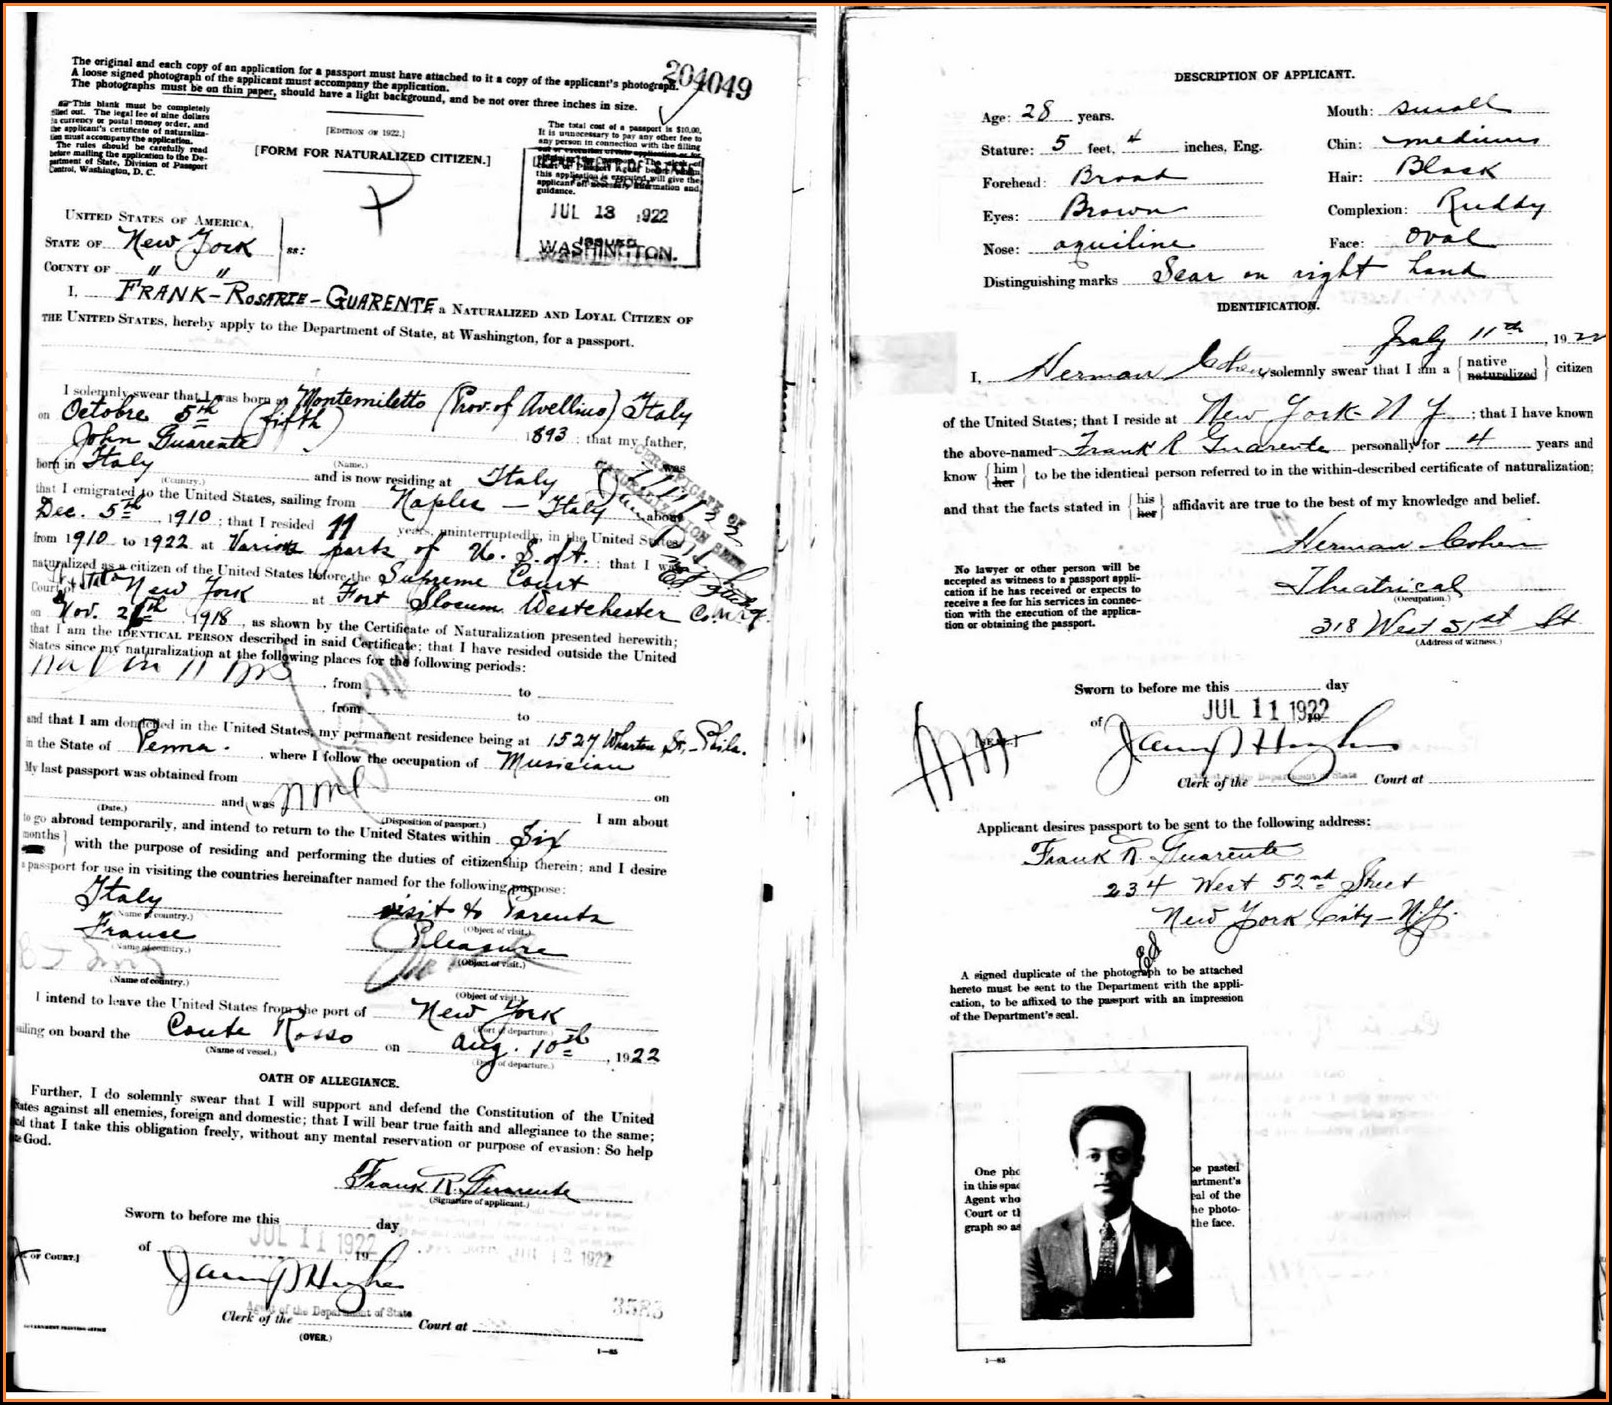 The original and each copy of an application for a passport must have attached to it a copy of the applicant's photograph.
A loose signed photograph of the applicant must accompany the application.
The photographs must be on thin paper, should have a light background, and be not over three inches in size.
204049
This blank must be completely
filled out. The legal fee of nine dollars
in currency or postal money order, and
the applicant's certificate of naturaliza-
tion must accompany the application.
The rules should be carefully read
before mailing the application to the De-
partment of State, Division of Passport
Control, Washington, D. C.
[EDITION OF 1922.]
[FORM FOR NATURALIZED CITIZEN.]
The total cost of a passport is $10.00.
It is unnecessary to pay any other fee to
any person in connection with the filling
this application is executed will give the
applicant all necessary information and
guidance.
DEPARTMENT OF STATE
JUL 13 1922
ISSUED
WASHINGTON.
UNITED STATES OF AMERICA,
STATE OF New York
ss:
COUNTY OF " "
I, FRANK-ROSARIE-GUARENTE, a NATURALIZED AND LOYAL CITIZEN OF
THE UNITED STATES, hereby apply to the Department of State, at Washington, for a passport.
I solemnly swear that I was born at Montemiletto (Prov. of Avellino) Italy
on Octobre 5th (fifth) 1893; that my father,
John Guarente was
(Name.)
born in Italy and is now residing at Italy
(Country.)
that I emigrated to the United States, sailing from Naples - Italy about
Dec. 5th, 1910; that I resided 11 years, uninterruptedly, in the United States
from 1910 to 1922 at Various parts of U. S. of A.; that I was
naturalized as a citizen of the United States before the Supreme Court
Court of State New York at Fort Slocum Westchester Co. N.Y.
on Nov. 26th 1918, as shown by the Certificate of Naturalization presented herewith;
that I am the IDENTICAL PERSON described in said Certificate; that I have resided outside the United
States since my naturalization at the following places for the following periods:
, from to
, from to
and that I am domiciled in the United States, my permanent residence being at 1527 Wharton St, - Phila.
in the State of Penna. where I follow the occupation of Musician
My last passport was obtained from none
on and was I am about
(Date.) (Disposition of passport.)
to go abroad temporarily, and intend to return to the United States within Six
months } with the purpose of residing and performing the duties of citizenship therein; and I desire
a passport for use in visiting the countries hereinafter named for the following purpose:
Italy visit to Parents
(Name of country.) (Object of visit.)
Franse Pleasure
(Name of country.) (Object of visit.)
(Name of country.) (Object of visit.)
I intend to leave the United States from the port of New York
(Port of departure.)
sailing on board the Conte Rosso on Aug. 10th, 1922
(Name of vessel.) (Date of departure.)
OATH OF ALLEGIANCE.
Further, I do solemnly swear that I will support and defend the Constitution of the United
States against all enemies, foreign and domestic; that I will bear true faith and allegiance to the same;
and that I take this obligation freely, without any mental reservation or purpose of evasion: So help
me God.
Frank R. Guarente
(Signature of applicant.)
Sworn to before me this day
of JUL 11 1922 19
OF COURT.]
Agent of the Department of State
Clerk of the Court at
3583
(OVER.)
GOVERNMENT PRINTING OFFICE
1—85
DESCRIPTION OF APPLICANT.
Age: 28 years.
Mouth: small
Stature: 5 feet, 4 inches, Eng.
Chin: medium
Forehead: Broad
Hair: Black
Eyes: Brown
Complexion: Ruddy
Nose: aquiline
Face: oval
Distinguishing marks Scar on right hand
IDENTIFICATION.
July 11th, 1922
I, Herman Cohen, solemnly swear that I am a {native naturalized} citizen
of the United States; that I reside at New York N Y; that I have known
the above-named Frank R Guarente personally for 4 years and
know {him her} to be the identical person referred to in the within-described certificate of naturalization;
and that the facts stated in {his her} affidavit are true to the best of my knowledge and belief.
Herman Cohen
No lawyer or other person will be
accepted as witness to a passport appli-
cation if he has received or expects to
receive a fee for his services in connec-
tion with the execution of the applica-
tion or obtaining the passport.
Theatrical
(Occupation.)
318 West 51st St
(Address of witness.)
Sworn to before me this day
of JUL 11 1922
[SEAL.]
Agent of the Department of State
Clerk of the Court at
Applicant desires passport to be sent to the following address:
Frank R. Guarente
234 West 52nd Street
New York City - N.Y.
A signed duplicate of the photograph to be attached
hereto must be sent to the Department with the appli-
cation, to be affixed to the passport with an impression
of the Department's seal.
One pho be pasted
in this spac artment's
Agent who eal of the
Court or th he photo-
graph so as the face.
1—85